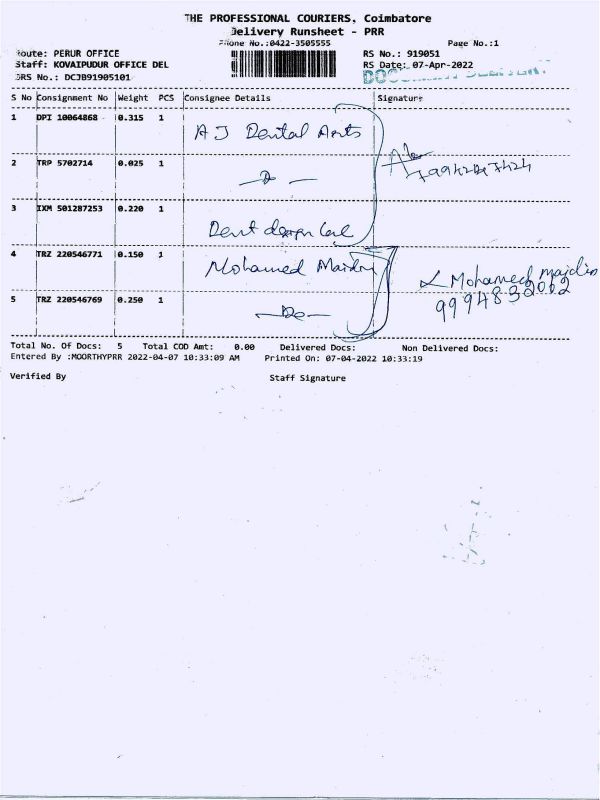 THE PROFESSIONAL COURIERS, Coimbatore
Delivery Runsheet - PRR
Phone No.:0422-3505555 Page No.:1
Route: PERUR OFFICE RS No.: 919051
Staff: KOVAIPUDUR OFFICE DEL RS Date: 07-Apr-2022
DRS No.: DCJB91905101
S No Consignment No Weight PCS Consignee Details Signature
1 DPI 10064868 0.315 1 A J Dental Arts
2 TRP 5702714 0.025 1
3 IXM 501287253 0.220 1 Dent design
4 TRZ 220546771 0.150 1 Mohamed
Mohamed majdin
5 TRZ 220546769 0.250 1 — Do —
Total No. Of Docs: 5 Total COD Amt: 0.00 Delivered Docs: Non Delivered Docs:
Entered By :MOORTHYPRR 2022-04-07 10:33:09 AM Printed On: 07-04-2022 10:33:19
Verified By Staff Signature